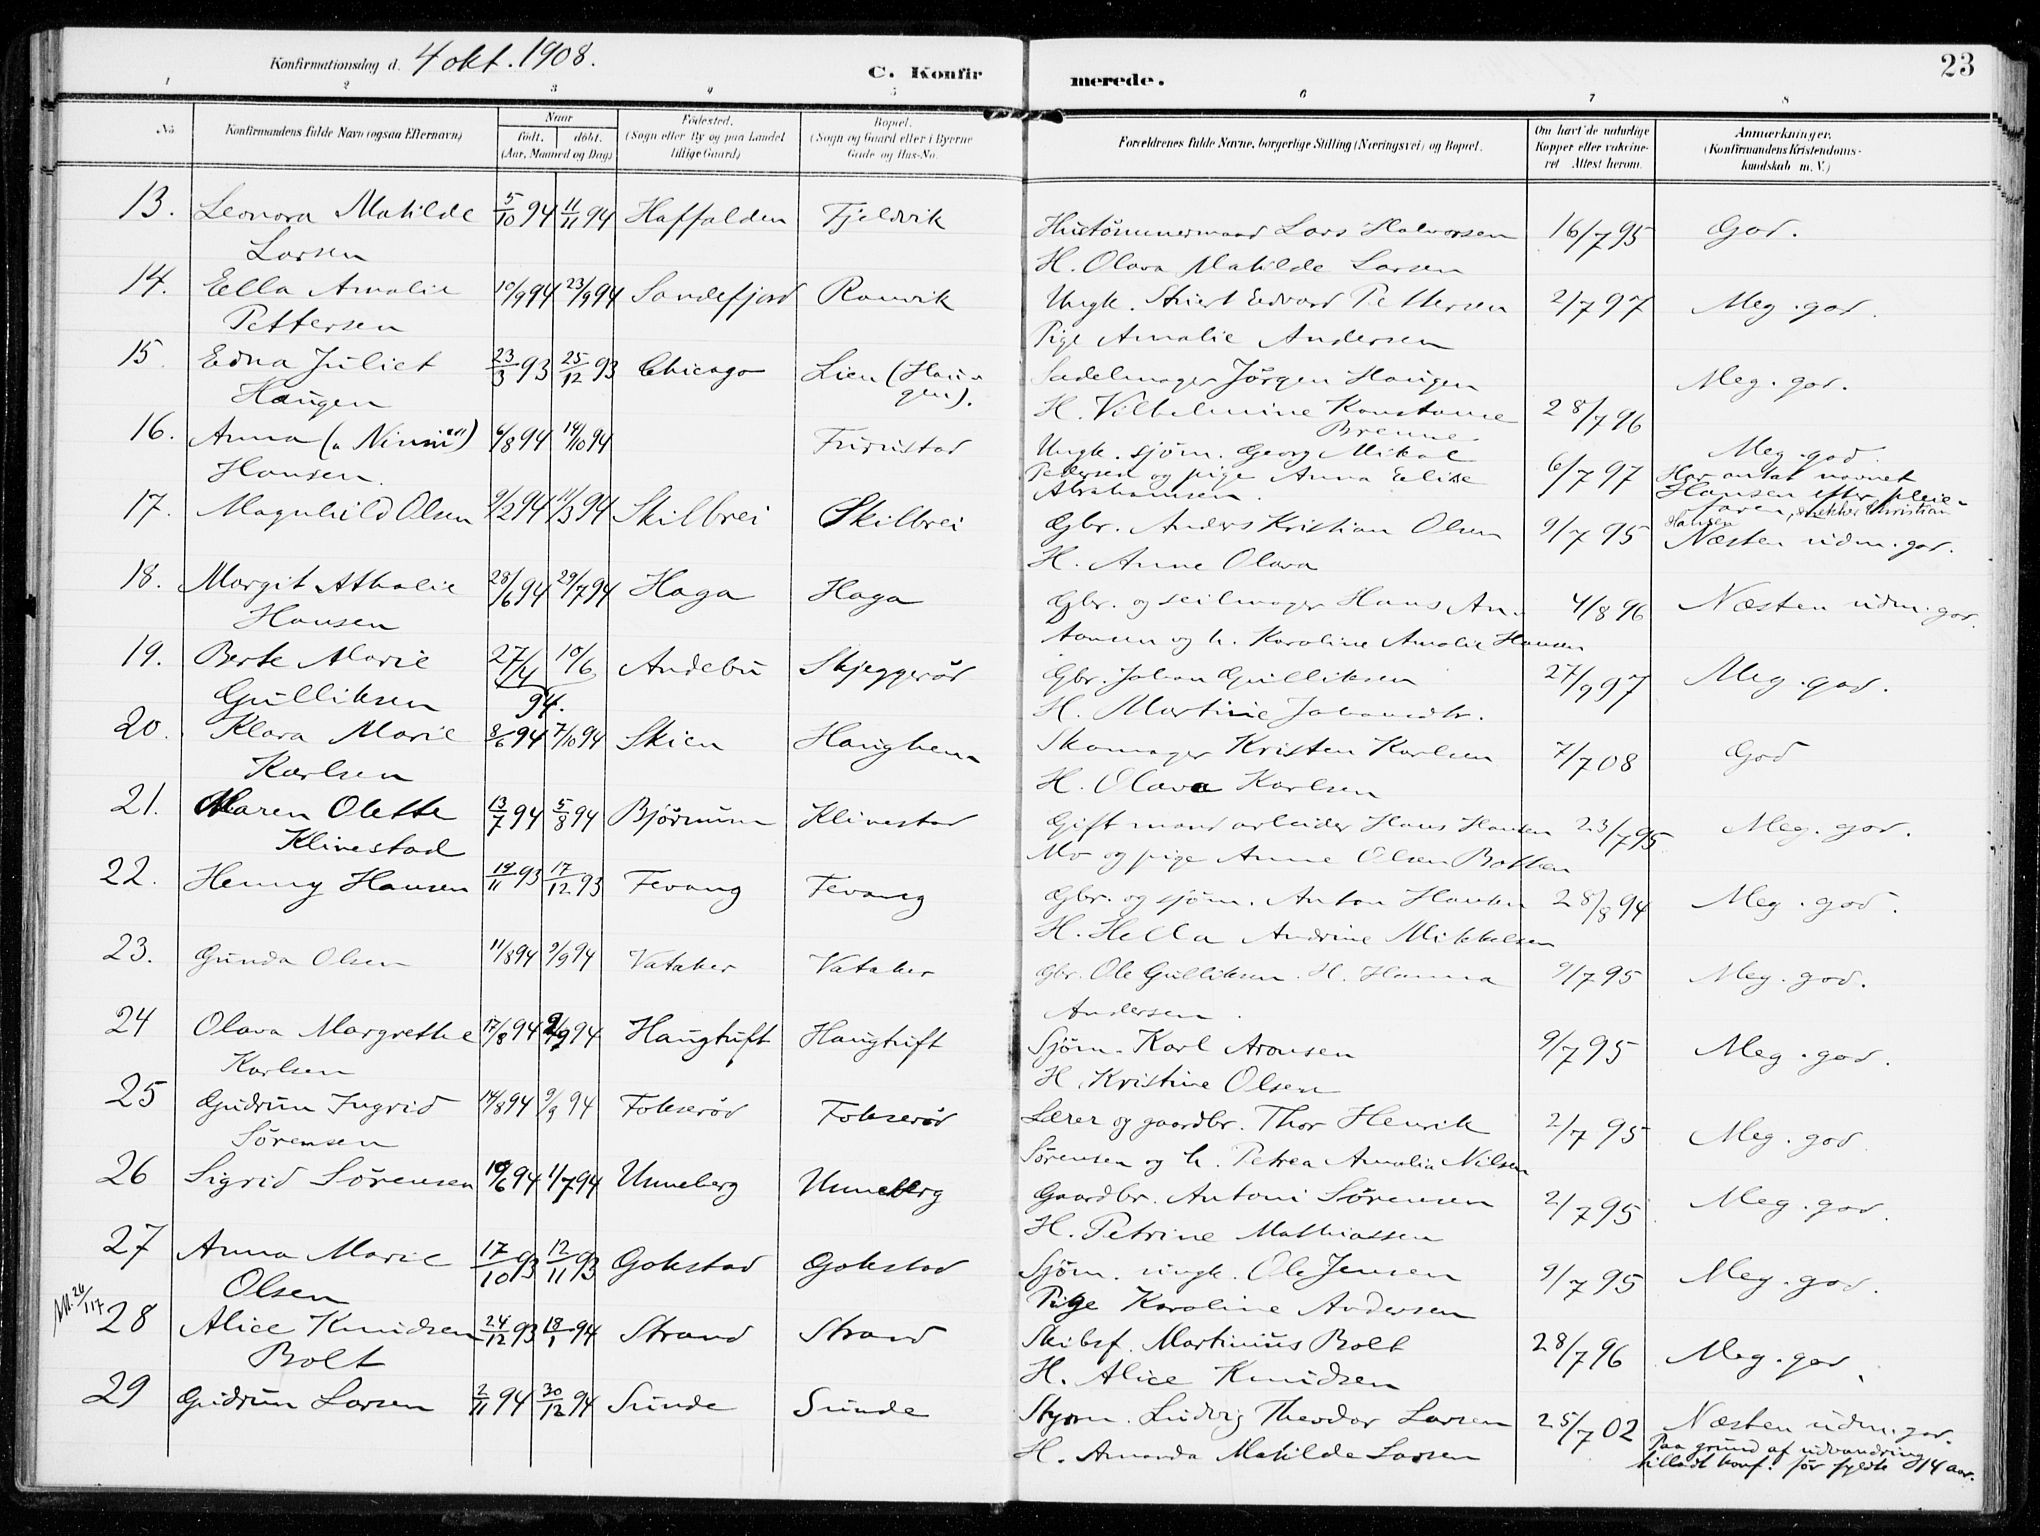 Konfirmationsdag d. 4 okt. 1908.
C. Konfir merede.
23
1 2 3 4 5 6 7 8
No.
Konfirmandens fulde Navn (ogsaa Efternavn)
Naar
født. døbt.
(Aar, Maaned og Dag)
Fødested.
(Sogn eller By og paa Landet
tillige Gaard)
Bopæl.
(Sogn og Gaard eller i Byerne
Gade og Hus-No.
Forældrenes fulde Navne, borgerlige Stilling (Næringsvei) og Bopæl.
Om havt de naturlige
Kopper eller vakcine-
ret Attest herom.
Anmærkninger.
(Konfirmandens Kristendoms-
kundskab m. V.)
13. Leonora Matilde 5/10 94 11/11 94 Haffalden Fjeldvik Hustømmermand Lars Halvorsen 16/7 95 God.
Larsen H. Olava Matilde Larsen
14. Ella Amalie 10/9 94 23/9 94 Sandefjord Ranvik Ungk. Edvard Pettersen 2/7 97 Meg. god.
Pettersen Pige Amalie Andersen
15. Edna Juliet 23/3 93 25/12 93 Chicago Lien (Hau- Sadelmager Jörgen Haugen Meg. god.
Haugen gen). H. Vilhelmine Konstanse 28/7 96
Brenne
16. Anna ("Ninni") 6/8 94 14/10 94 Furustad Ungk. sjøm. Georg Mikal Meg. god.
Hansen. Pedersen og pige Anna Elise 6/7 97 Har antat navnet
Abrahamsen. Hansen efter pleie-
faren, Kristian
Hansen
17. Magnhild Olsen 9/2 94 11/3 94 Skilbrei Skilbrei Gbr. Anders Kristian Olsen 9/7 95 Næsten udm. god.
H. Anne Olava
18. Margit Athalie 28/6 94 29/7 94 Haga Haga Gbr. og seilmager Hans An- 4/8 96 Næsten udm. god.
Hansen tonsen og h. Karoline Amalie Hansen
19. Berte Marie 27/4 10/6 Andebu Skjeggerød Gbr. Johan Gulliksen 27/9 97 Meg. god.
Gulliksen 94. H. Martine Johansdtr.
20. Klara Marie 8/6 94 7/10 94 Skien Haughem Skomager Kristen Karlsen 7/7 08 God
Karlsen H. Olava Karlsen
21. Maren Olette 13/7 94 5/8 94 Bjørnum Klinestad Gift mand arbeider Hans Hansen 23/7 95 Meg. god.
Klinestad Mo og pige Anne Olsen Botten
22. Henny Hansen 19/11 93 17/12 93 Fevang Fevang Gbr. og sjøm. Anton Hansen 28/8 94 Meg. god.
H. Hella Andrine Mikkelsen
23. Gunda Olsen 11/8 94 9/9 94 Vataker Vataker Gbr. Ole Gulliksen. H. Hanna 9/7 95 Meg. god.
Andersen.
24 Olava Margrethe 17/8 94 2/9 94 Haugtuft Haugtuft Sjøm. Karl Aronsen 9/7 95 Meg. god.
Karlsen H. Kristine Olsen
25 Gudrun Ingrid 14/8 94 9/9 94 Fokserød Fokserød Lærer og gaardbr. Thor Henrik 2/7 95 Meg. god
Sørensen Sørensen og h. Petrea Amalia Nilsen
26 Sigrid Sørensen 10/6 94 1/7 94 Unneberg Unneberg Gaardbr. Antoni Sørensen 2/7 95 Meg. god.
H. Petrine Mathiassen
27 Anna Marie 17/10 93 12/11 93 Gokstad Gokstad Sjøm. ungk. Ole Jensen 9/7 95 Meg. god.
Olsen Pige Karoline Andersen
28 Alice Knudsen 24/12 93 18/1 94 Strand Strand Skibsf. Martinius Bolt 28/7 96 Meg. god.
Bolt H. Alice Knudsen
29 Gudrun Larsen 2/11 94 30/12 94 Sunde Sunde Styrm. Ludvig Theodor Larsen 25/7 02 Næsten udm. god.
H. Amanda Matilde Larsen Paa grund af udvandring
tilladt konf. før fyldte 14 aar.